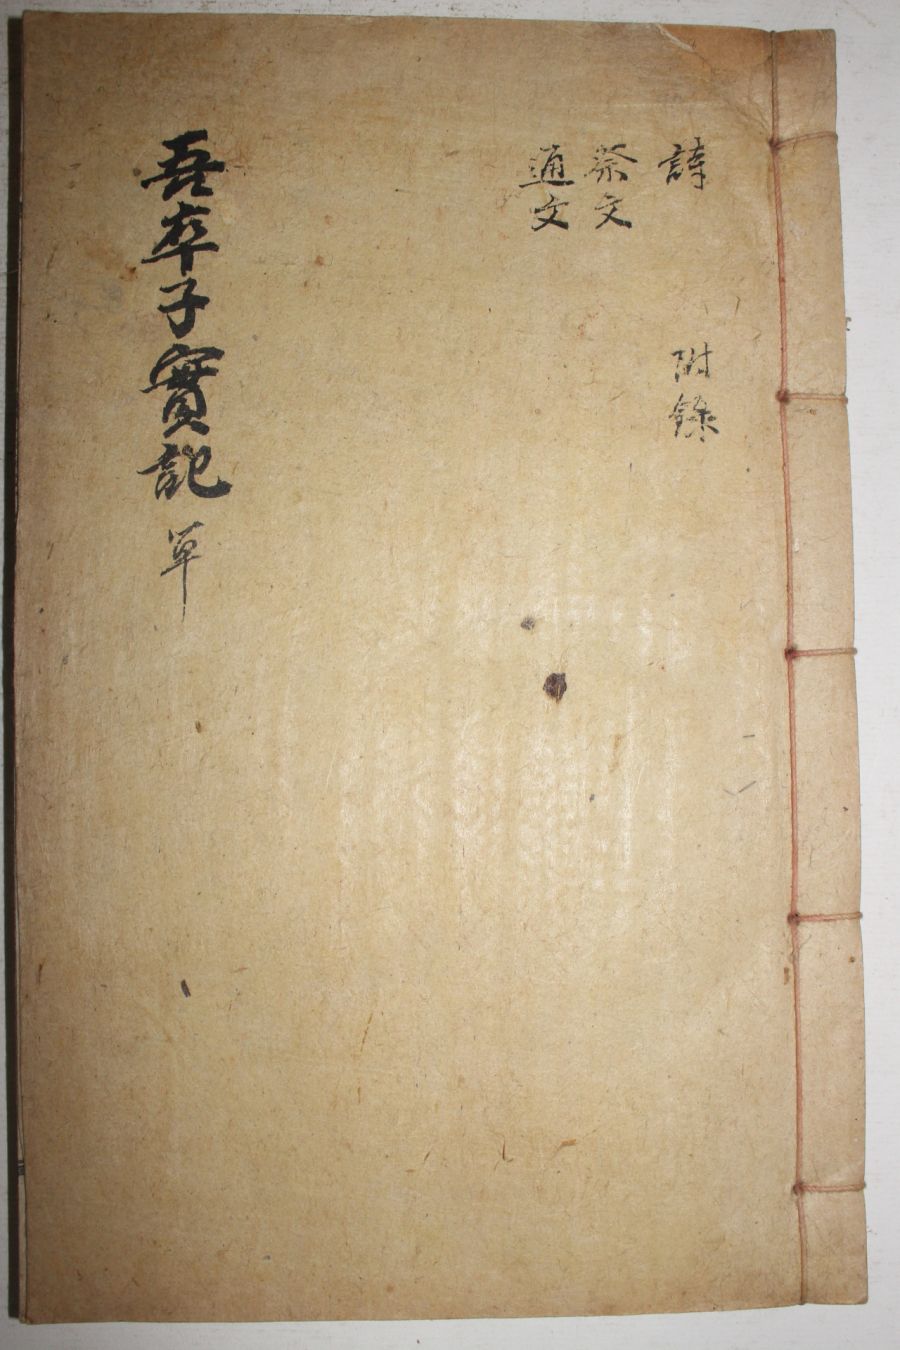 詩 附錄
祭文
通文
吾卒子實記 單